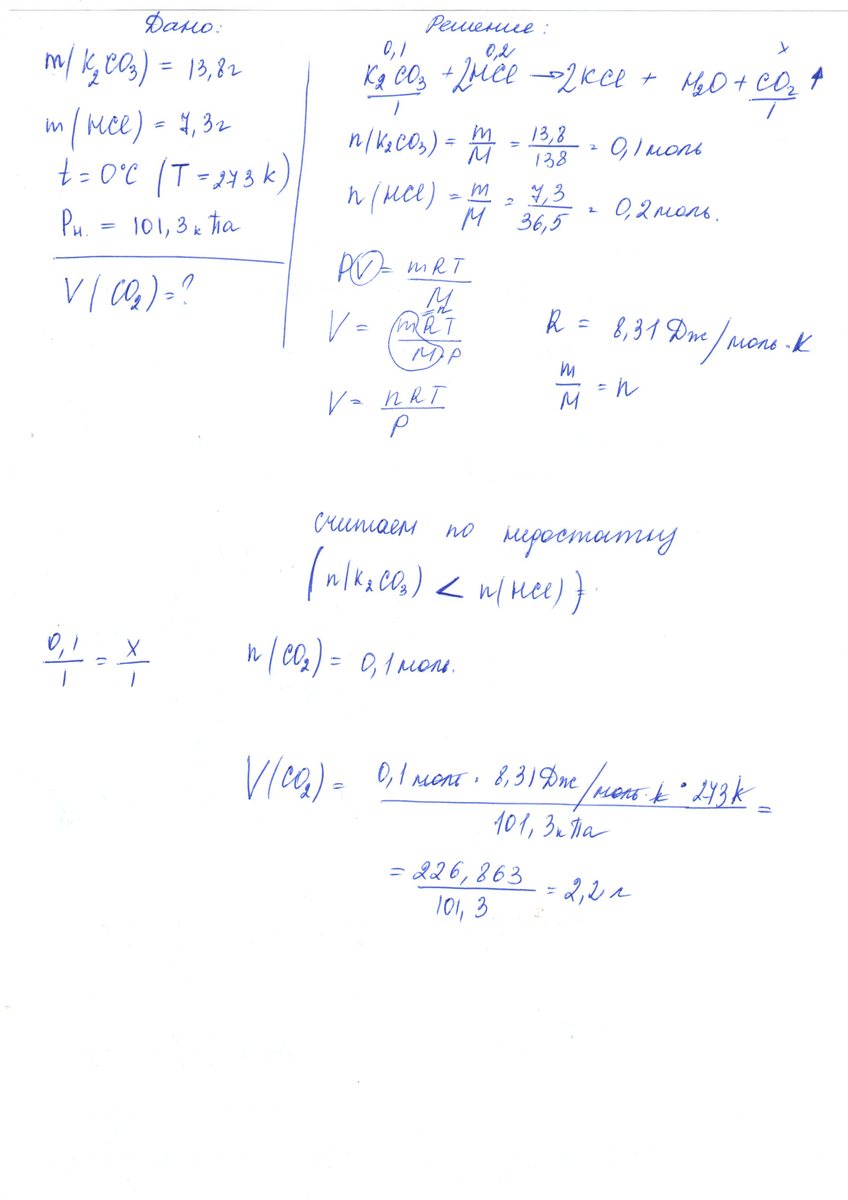 Дано:
m(K₂CO₃) = 13,8г
m(HCl) = 7,3г
t = 0°C (T = 273 k)
Pн. = 101,3 кПа
V(CO₂) = ?
Решение:
0,1 0,2 x
K₂CO₃ + 2HCl → 2KCl + H₂O + CO₂ ↑
1 1
n(K₂CO₃) = m/M = 13,8/138 = 0,1 моль
n(HCl) = m/M = 7,3/36,5 = 0,2 моль.
PV = mRT/M
V = mRT/M·P = n
V = nRT/P
R = 8,31 Дж/моль·К
m/M = n
считаем по недостатку
(n(K₂CO₃) < n(HCl))
0,1/1 = x/1
n(CO₂) = 0,1 моль.
V(CO₂) = 0,1 моль · 8,31 Дж/моль·k · 273k / 101,3 кПа =
= 226,863/101,3 = 2,2 л